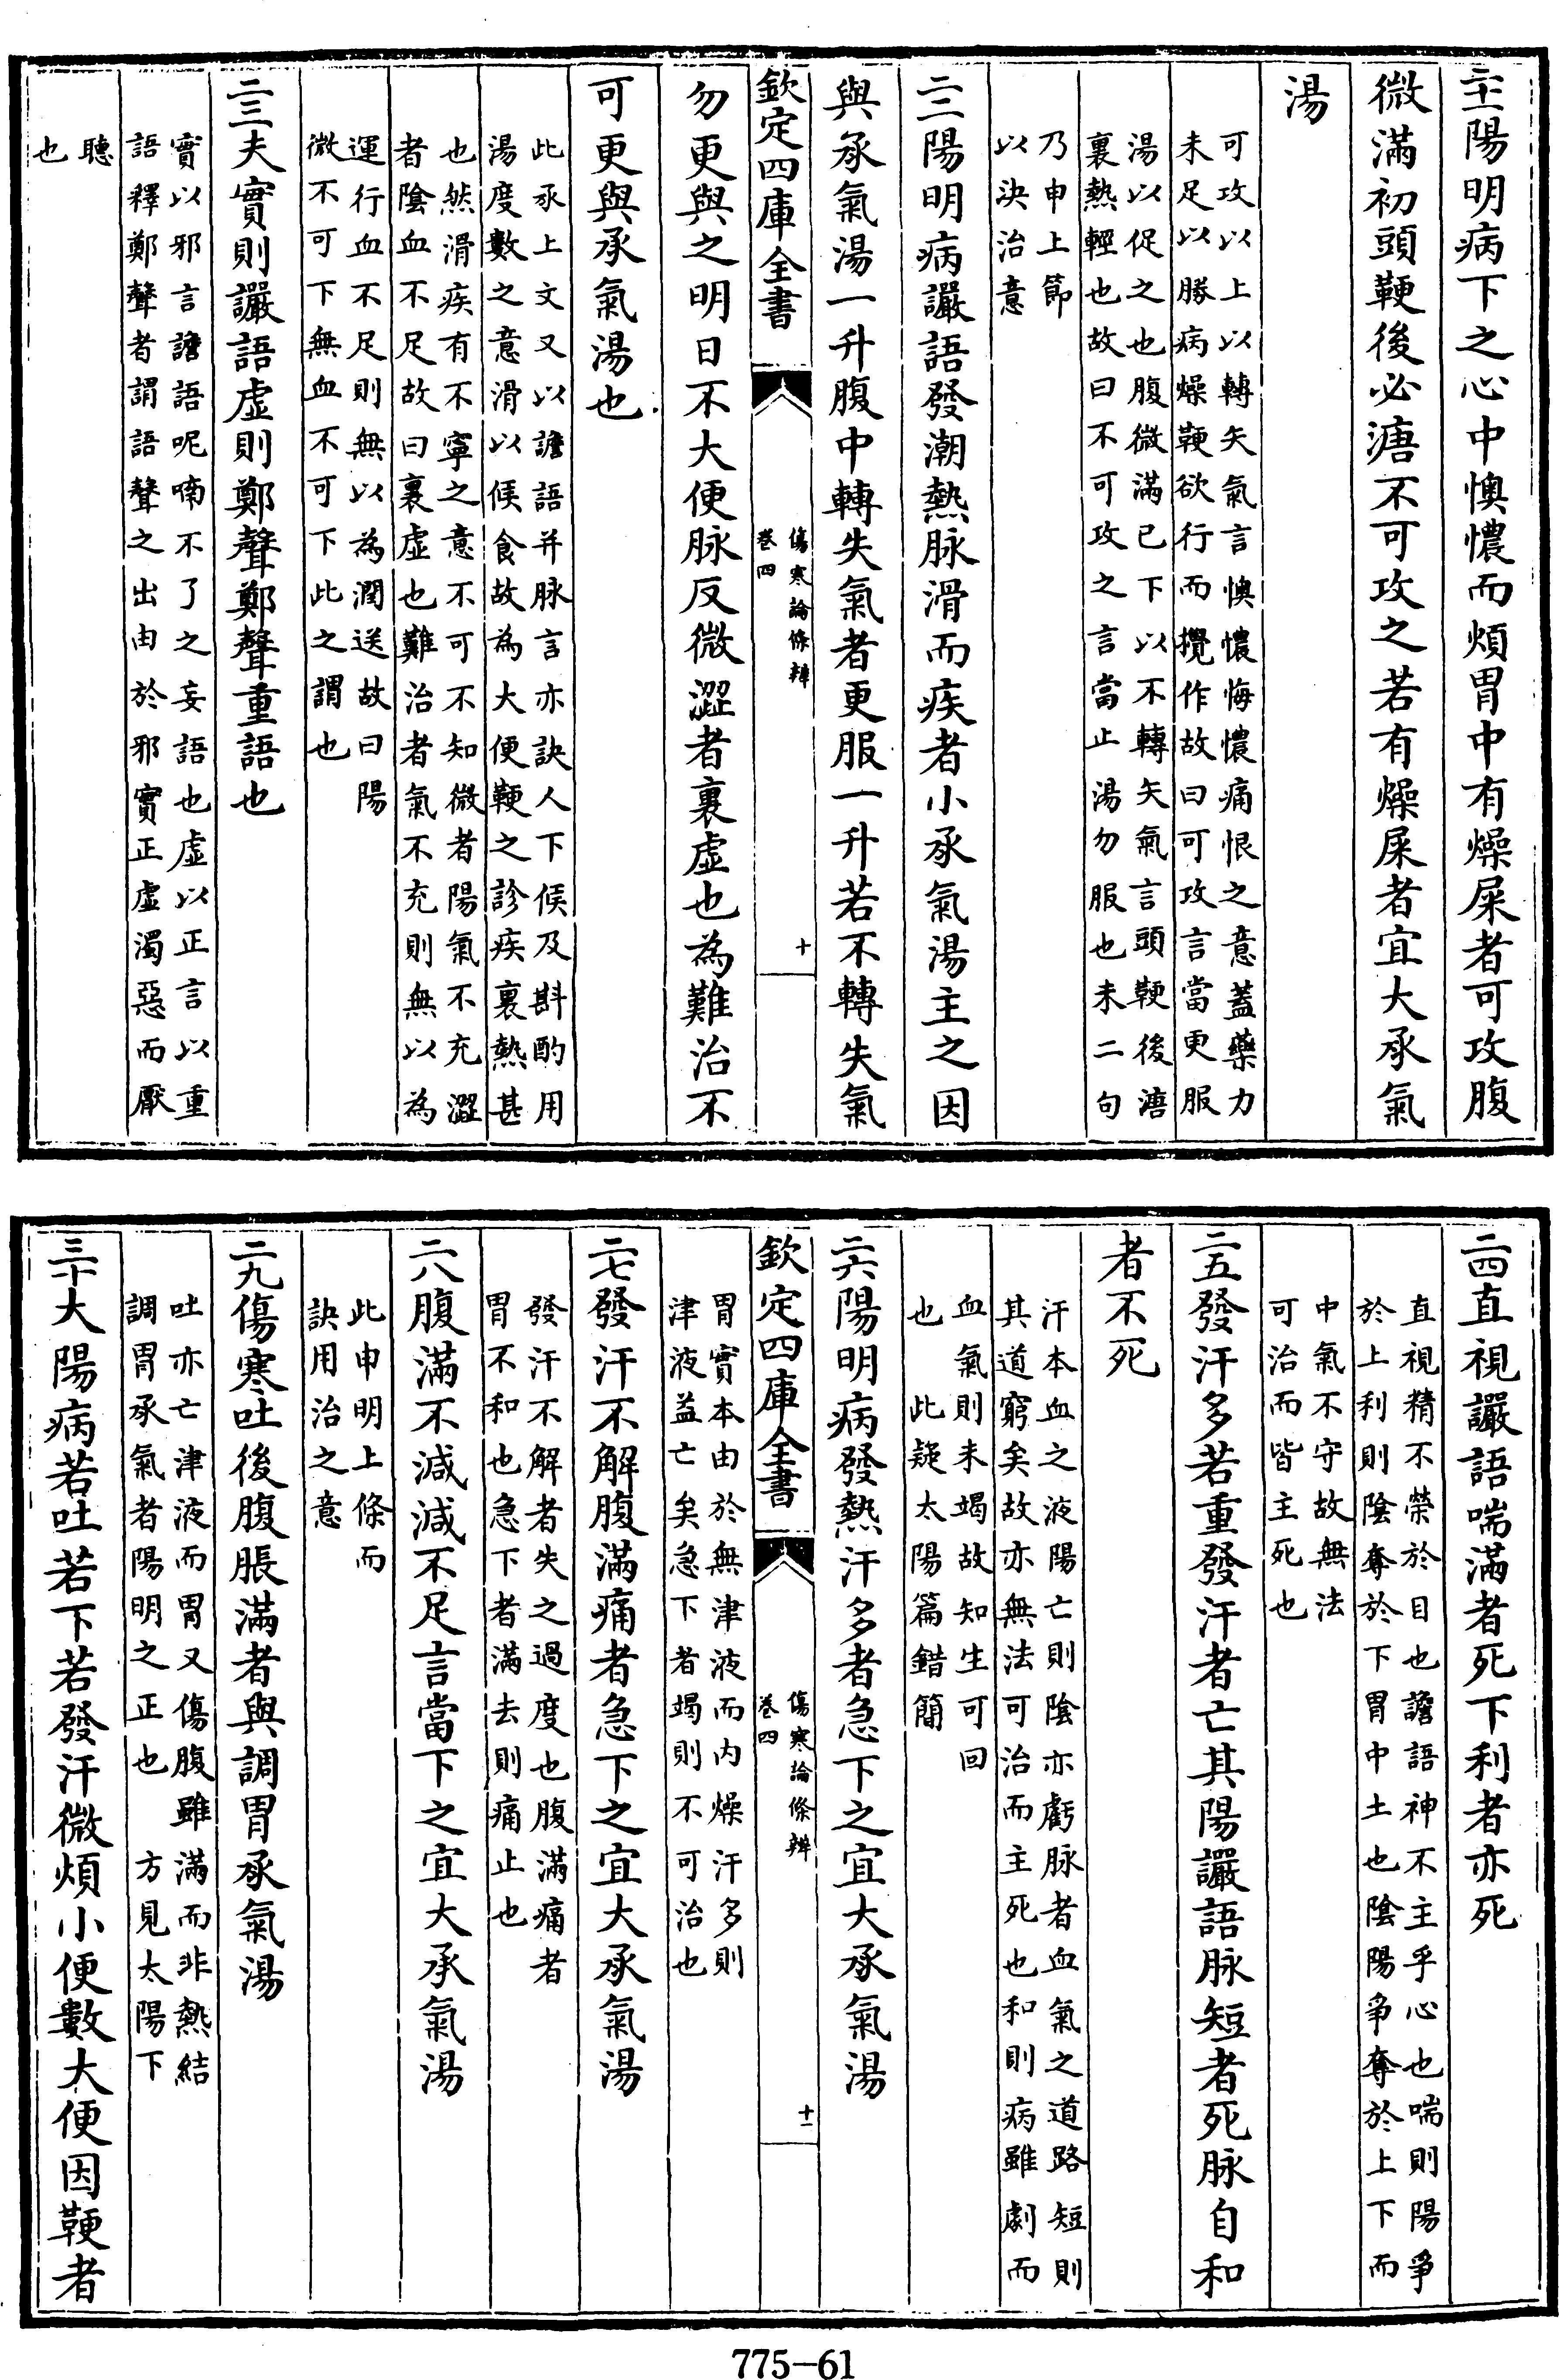 二十一陽明病下之心中懊憹而煩胃中有燥屎者可攻腹
微滿初頭鞕後必溏不可攻之若有燥屎者宜大承氣
湯
可攻以上以轉矢氣言懊憹悔憹痛恨之意蓋藥力
未足以勝病燥鞕欲行而攪作故曰可攻言當更服
湯以促之也腹微滿已下以不轉矢氣言頭鞕後溏
裏熱輕也故曰不可攻之言當止湯勿服也未二句
乃申上節
以決治意
二二陽明病讝語發潮熱脉滑而疾者小承氣湯主之因
與承氣湯一升腹中轉失氣者更服一升若不轉失氣
欽定四庫全書
傷寒論條辨
卷四
十
勿更與之明日不大便脉反微澀者裏虛也為難治不
可更與承氣湯也
此承上文又以譫語并脉言亦訣人下候及斟酌用
湯度數之意滑以候食故為大便鞕之診疾裏熱甚
也然滑疾有不寧之意不可不知微者陽氣不充澀
者陰血不足故曰裏虛也難治者氣不充則無以為
運行血不足則無以為潤送故曰陽
微不可下無血不可下此之謂也
二三夫實則讝語虛則鄭聲鄭聲重語也
實以邪言譫語呢喃不了之妄語也虛以正言以重
語釋鄭聲者謂語聲之出由於邪實正虛濁惡而厭
聽
也
二四直視讝語喘滿者死下利者亦死
直視精不榮於目也譫語神不主乎心也喘則陽爭
於上利則陰奪於下胃中土也陰陽爭奪於上下而
中氣不守故無法
可治而皆主死也
二五發汗多若重發汗者亡其陽讝語脉短者死脉自和
者不死
汗本血之液陽亡則陰亦虧脉者血氣之道路短則
其道窮矣故亦無法可治而主死也和則病雖劇而
血氣則未竭故知生可回
也　此疑太陽篇錯簡
二六陽明病發熱汗多者急下之宜大承氣湯
欽定四庫全書
傷寒論條辨
卷四
十一
胃實本由於無津液而内燥汗多則
津液益亡矣急下者竭則不可治也
二七發汗不解腹滿痛者急下之宜大承氣湯
發汗不解者失之過度也腹滿痛者
胃不和也急下者滿去則痛止也
二八腹滿不減減不足言當下之宜大承氣湯
此申明上條而
訣用治之意
二九傷寒吐後腹脹滿者與調胃承氣湯
吐亦亡津液而胃又傷腹雖滿而非熱結
調胃承氣者陽明之正也　方見太陽下
三十大陽病若吐若下若發汗微煩小便數大便因鞕者
775-61